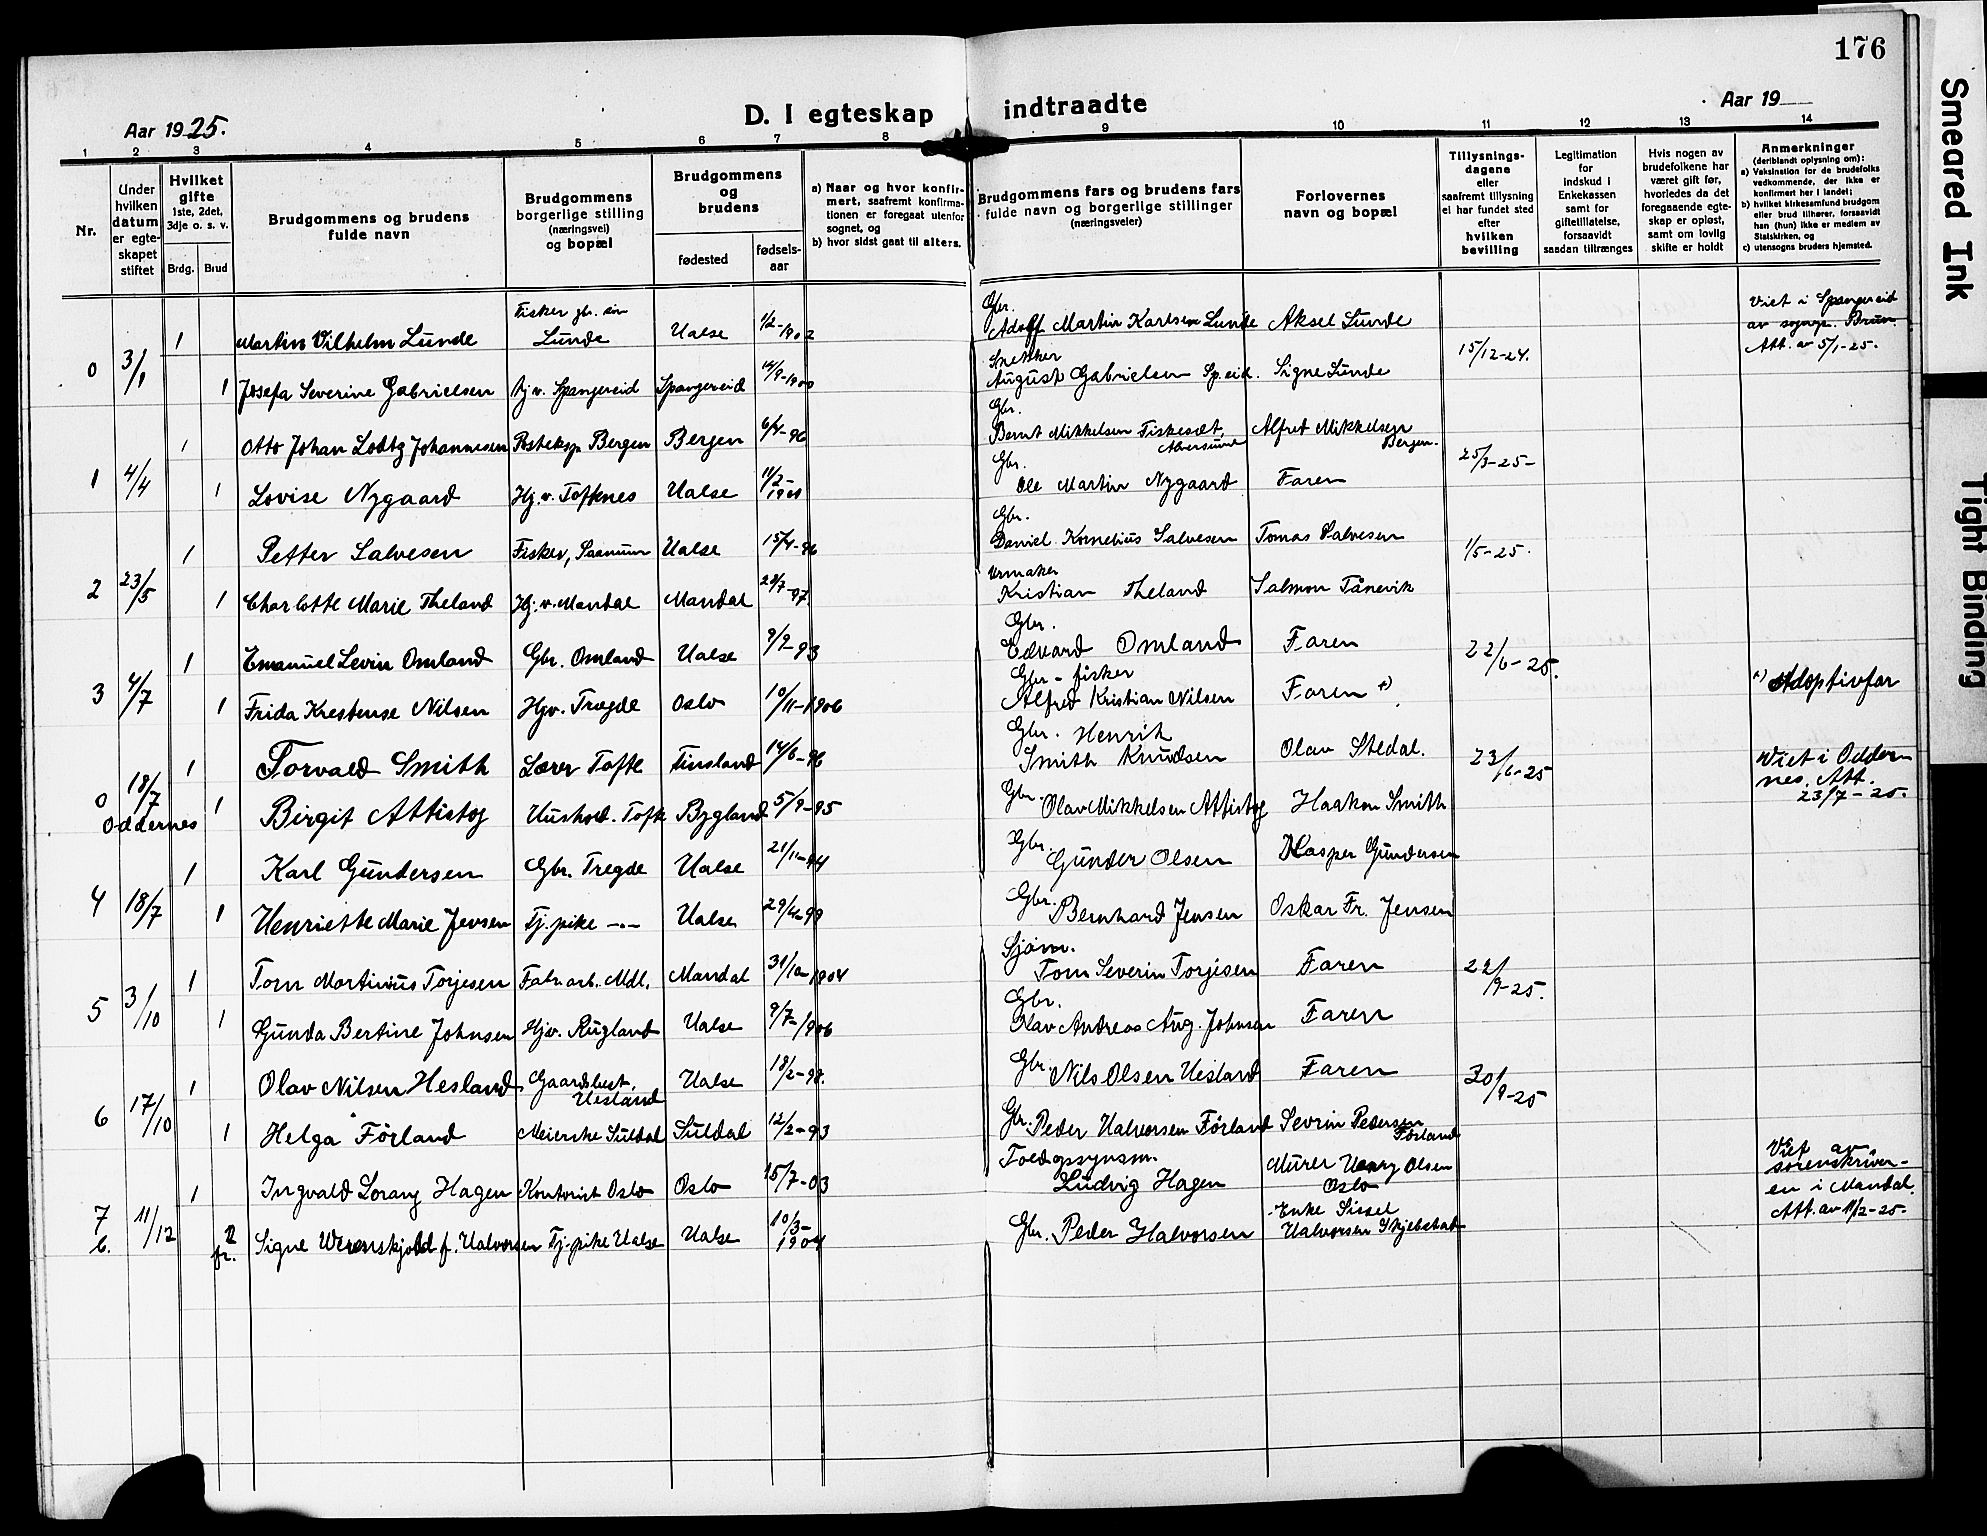 176
Smeared Ink
Tight Binding
Aar 1925.
D. I egteskap indtraadte
Aar 19
1 2 3 4 5 6 7 8 9 10 11 12 13 14
Nr.
Under hvilken datum er egteskapet stiftet
Hvilket gifte 1ste, 2det, 3dje o. s. v.
Brdg. Brud
Brudgommens og brudens fulde navn
Brudgommens borgerlige stilling (næringsvei) og bopæl
Brudgommens og brudens
fødested
fødselsaar
a) Naar og hvor konfirmert, saafremt konfirmationen er foregaat utenfor sognet, og
b) hvor sidst gaat til alters.
Brudgommens fars og brudens fars fulde navn og borgerlige stillinger (næringsveier)
Forlovernes navn og bopæl
Tillysningsdagene eller saafremt tillysning ei har fundet sted efter hvilken bevilling
Legitimation for indskud i Enkekassen samt for giftetillatelse, forsaavidt saadan tiltrænges
Hvis nogen av brudefolkene har været gift før, hvorledes da det foregaaende egteskap er opløst, samt om lovlig skifte er holdt
Anmerkninger (deriblandt oplysning om):
a) Vaksination for de brudefolks vedkommende, der ikke er konfirmert her i landet;
b) hvilket kirkesamfund brudgom eller brud tilhører, forsaavidt han (hun) ikke er medlem av Statskirken, og
c) utensogns bruders hjemsted.
0 3/1 1 Martin Vilhelm Lunde Fisker gb. søn Lunde Halse 1/2-1902 Gbr. Adolf Martin Karlsen Lunde Aksel Lunde 15/12-24. Viet i Spangereid av sognepr. Bruun. Att. av 5/1-25.
1 Josefa Severine Gabrielsen Hj. v. Spangereid Spangereid /9-1900 Snekker August Gabrielsen Sp.eid. Signe Lunde
1 4/4 1 Otto Johan Lodtz Johannesen Posteksp. Bergen Bergen 6/4-96 Gbr. Bernt Mikkelsen Fiskesæt, Alversund Alfred Mikkelsen Bergen. 25/3-25-
1 Lovise Nygaard Hj. v. Toftenes Halse 11/2-1901 Gbr. Ole Martin Nygaard Faren
2 23/5 1 Petter Salvesen Fisker, Saanum Halse 15/4-96 Gbr. Daniel Kornelius Salvesen Tomas Salvesen 1/5-25.
1 Charlotte Marie Theland Hj. v. Mandal Mandal 28/7-97. Urmaker Kristian Theland Salmon Tånevik
3 4/7 1 Emanuel Levin Omland Gbr. Omland Halse 9/9-93 Gbr. Edvard Omland Faren 22/6-25.
1 Frida Krestense Nilsen Hjv. Trægde Oslo 10/11-1906 Gbr-fisker Alfred Kristian Nilsen Faren +) +) Adoptivfar
0 Oddernes 18/7 1 Torvald Smith Lærer Tofte Finsland 14/6-96 Gbr. Henrik Smith Knudsen Olav Stedal. 23/6-25 Viet i Oddernes. Att. 23/7-25.
1 Birgit Attistog Hushold. Tofte Bygland 5/9-95 Gbr. Olav Mikkelsen Attistog Haakon Smith
4 18/7 1 Karl Gundersen Gbr. Tregde Halse 21/11-94 Gbr. Gunder Olsen Kasper Gundersen
1 Henriette Marie Jensen Tj. pike -"- Halse 29/4-99 Gbr. Bernhard Jensen Oskar Fr. Jensen
5 3/10 1 Tom Martinius Torjesen Fabr. arb. Mdl. Mandal 31/10-1904 Sjøm. Tom Severin Torjesen Faren 22/9-25.
1 Gunda Bertine Johnsen Hjv. Rugland Halse 9/7-1906 Gbr. Olav Andreas Aug. Johnsen Faren
6 17/10 1 Olav Nilsen Hesland Gaardsbest. Hesland Halse 18/2-98. Gbr. Nils Olsen Hesland Faren 30/9-25
1 Helga Førland Meierske Suldal Suldal 12/2-93 Gbr. Peder Halvorsen Førland Sevrin Pedersen Førland
7 b. 11/12 1 Ingvald Lorang Hagen Kontorist Oslo Oslo 15/7-03 Toldopsynsm. Ludvig Hagen Murer Henry Olsen Oslo Viet av sorenskriveren i Mandal. Att. av 11/2-25.
2 fr. Signe Werenskjold f. Halvorsen Tj. pike Halse Halse 10/3-1904 Gbr. Peder Halvorsen Enke Sissel Halvorsen Skjebstad